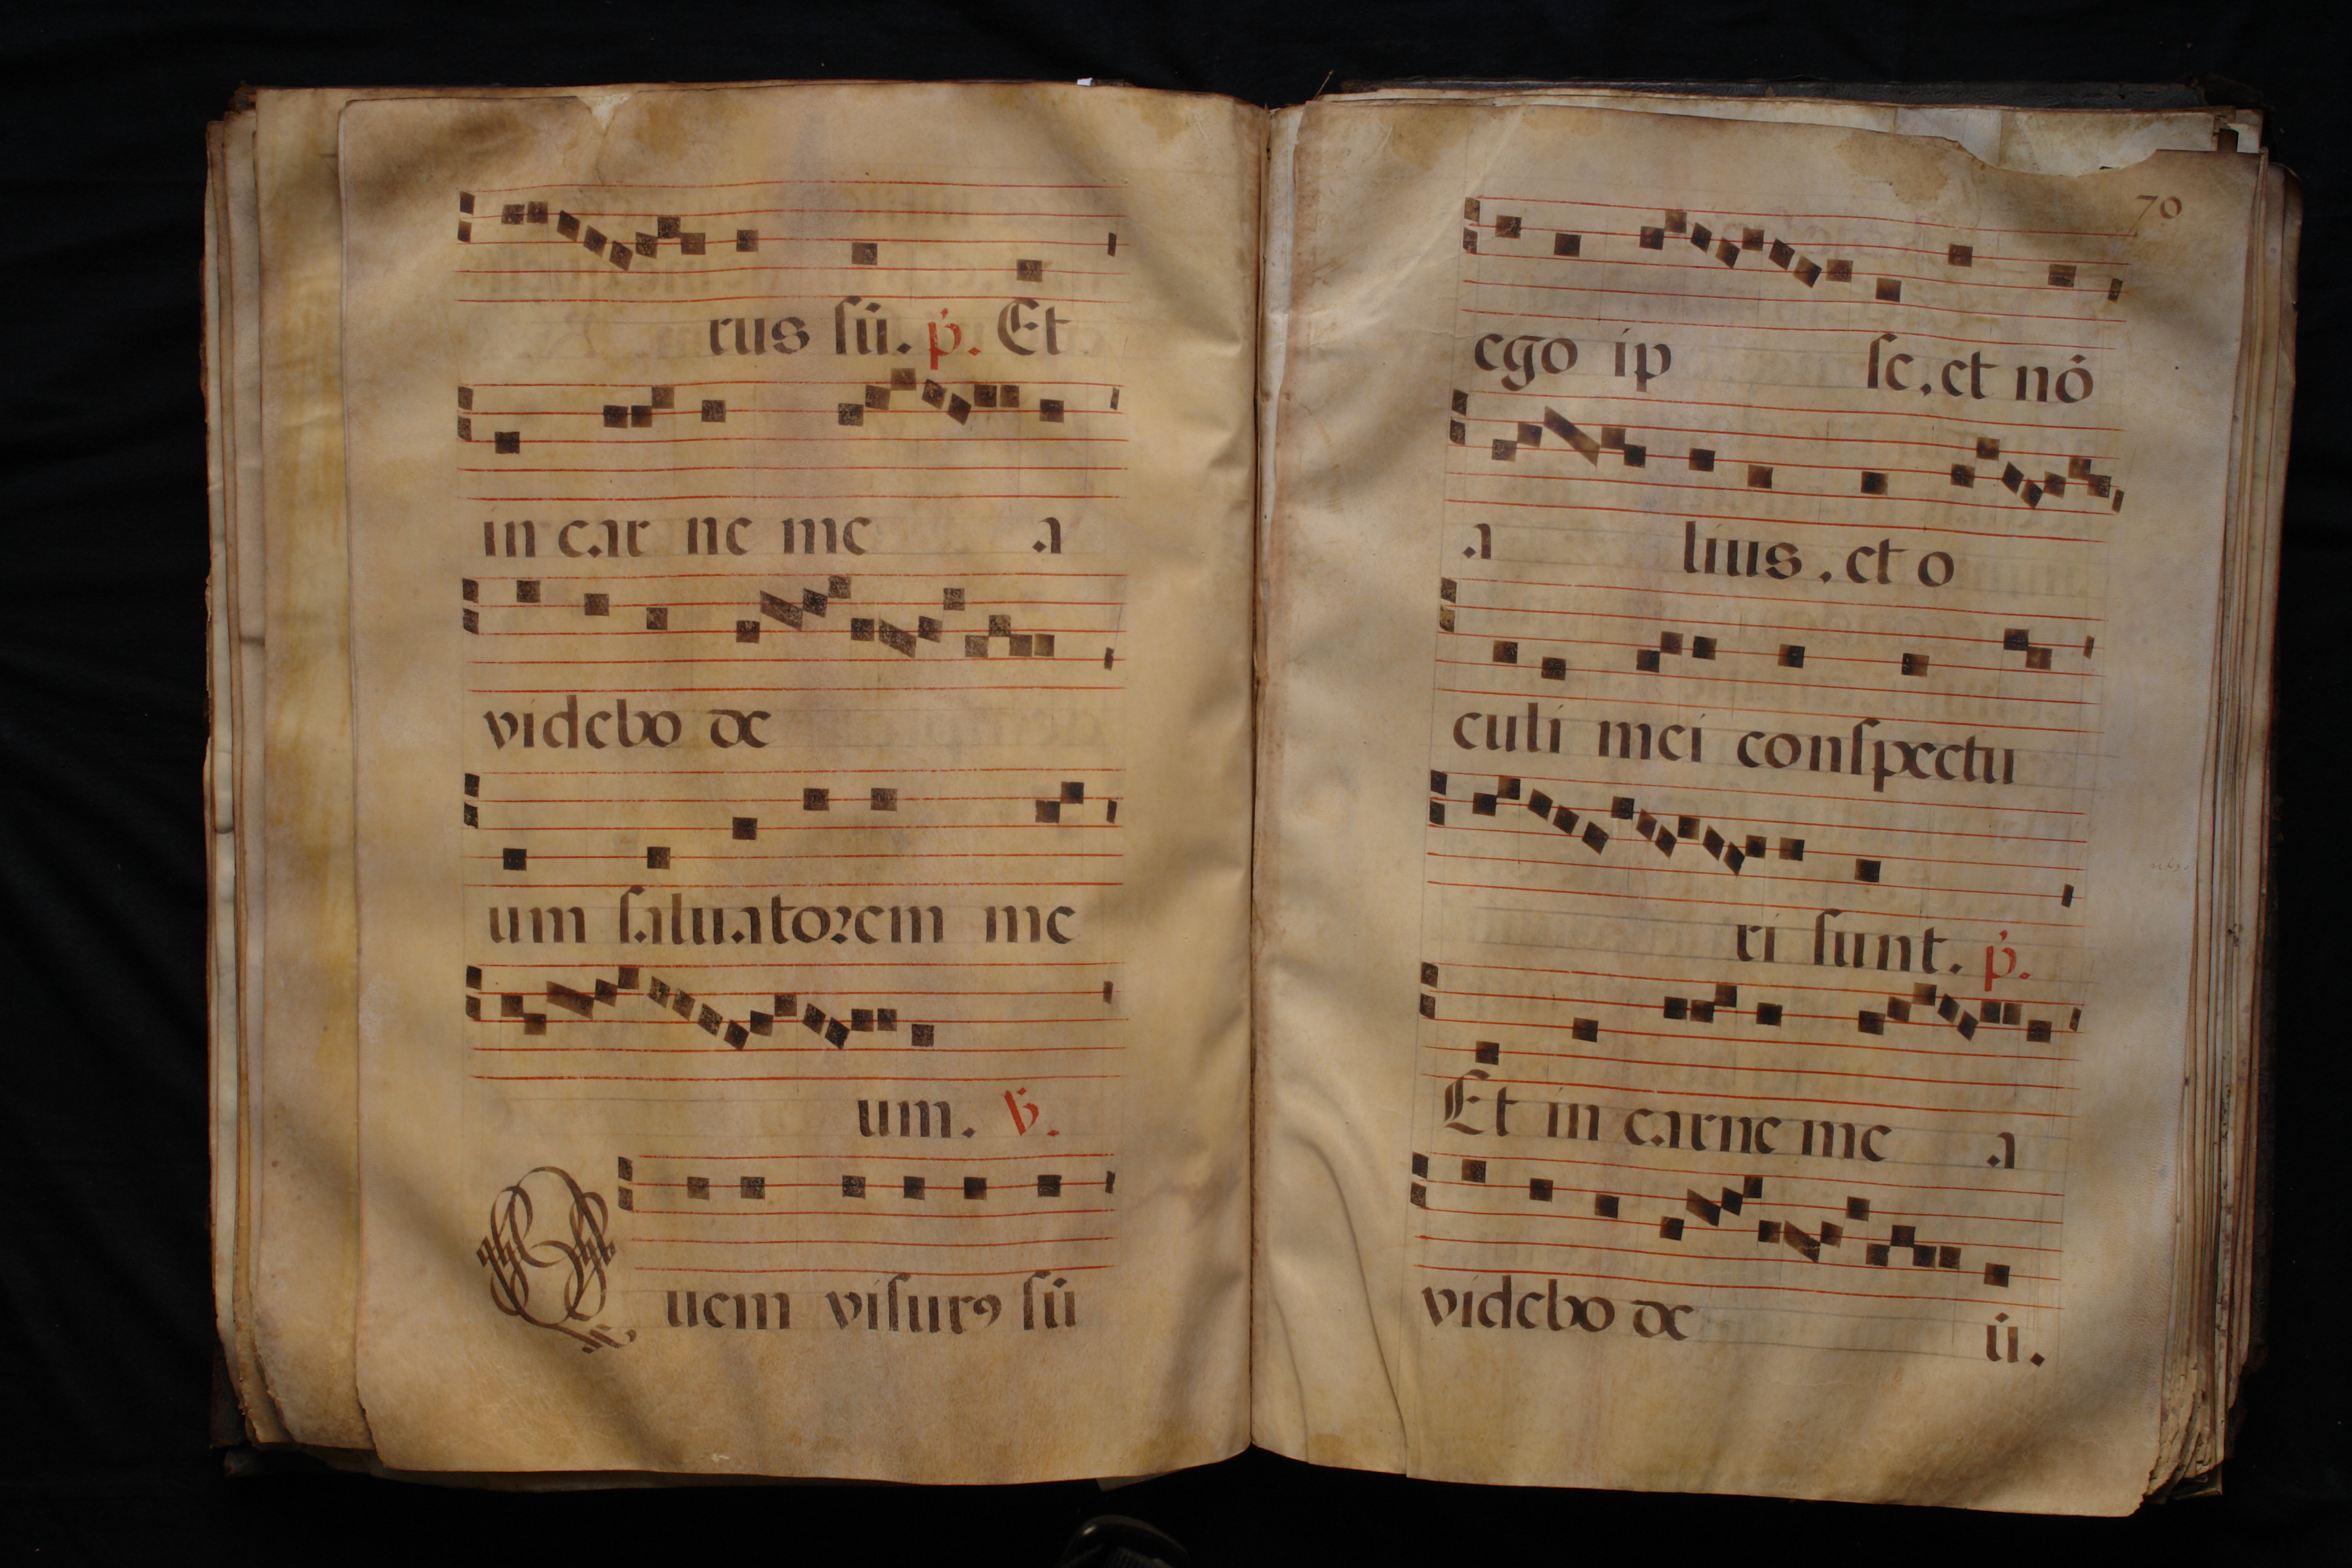 rus sū. p. Et
in car ne me a
videbo de
um saluatorem me
um. V.
Quem visurꝯ sū
70
ego ip se. et nō
a lius. et o
culi mei conspectu
ri sunt. p.
Et in carne me a
videbo de ū.